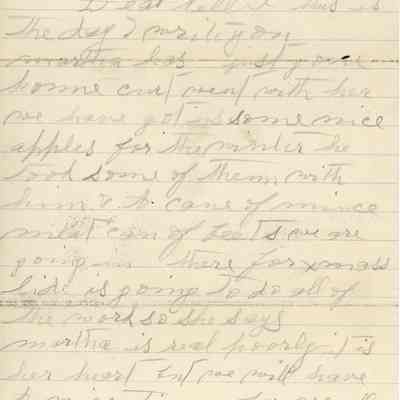 Dear this is
the day I write you
martha has just gone
home curt went with her
we have got in some nice
apples for the winter he
took some of them with
him & a cane of mince
meat can of we are
going in there for xmass
lide is going to do all of
the work so she says
martha is real poorly it is
her heart but we will have